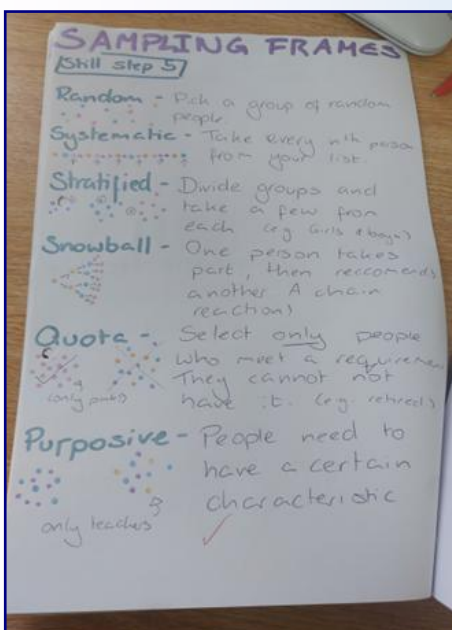 SAMPLING FRAMES
Skill step 5
Random - Pick a group of random
people.
Systematic - Take every nth person
from your list.
Stratified - Divide groups and
take a few from
each (eg Girls & boys)
Snowball - One person takes
part, then reccomends
another A chain
reaction)
Quota - Select only people
who meet a requiremen
They cannot not
have it. (eg. retired)
(only pink)
Purposive - People need to
have a certain
characteristic
only teachers